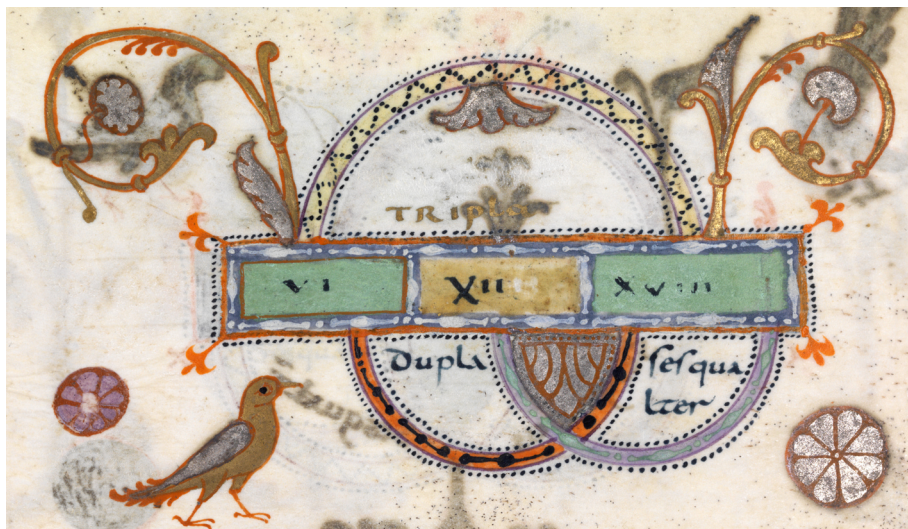 TRIpla
VI XII XVIII
dupla sesqua
lter